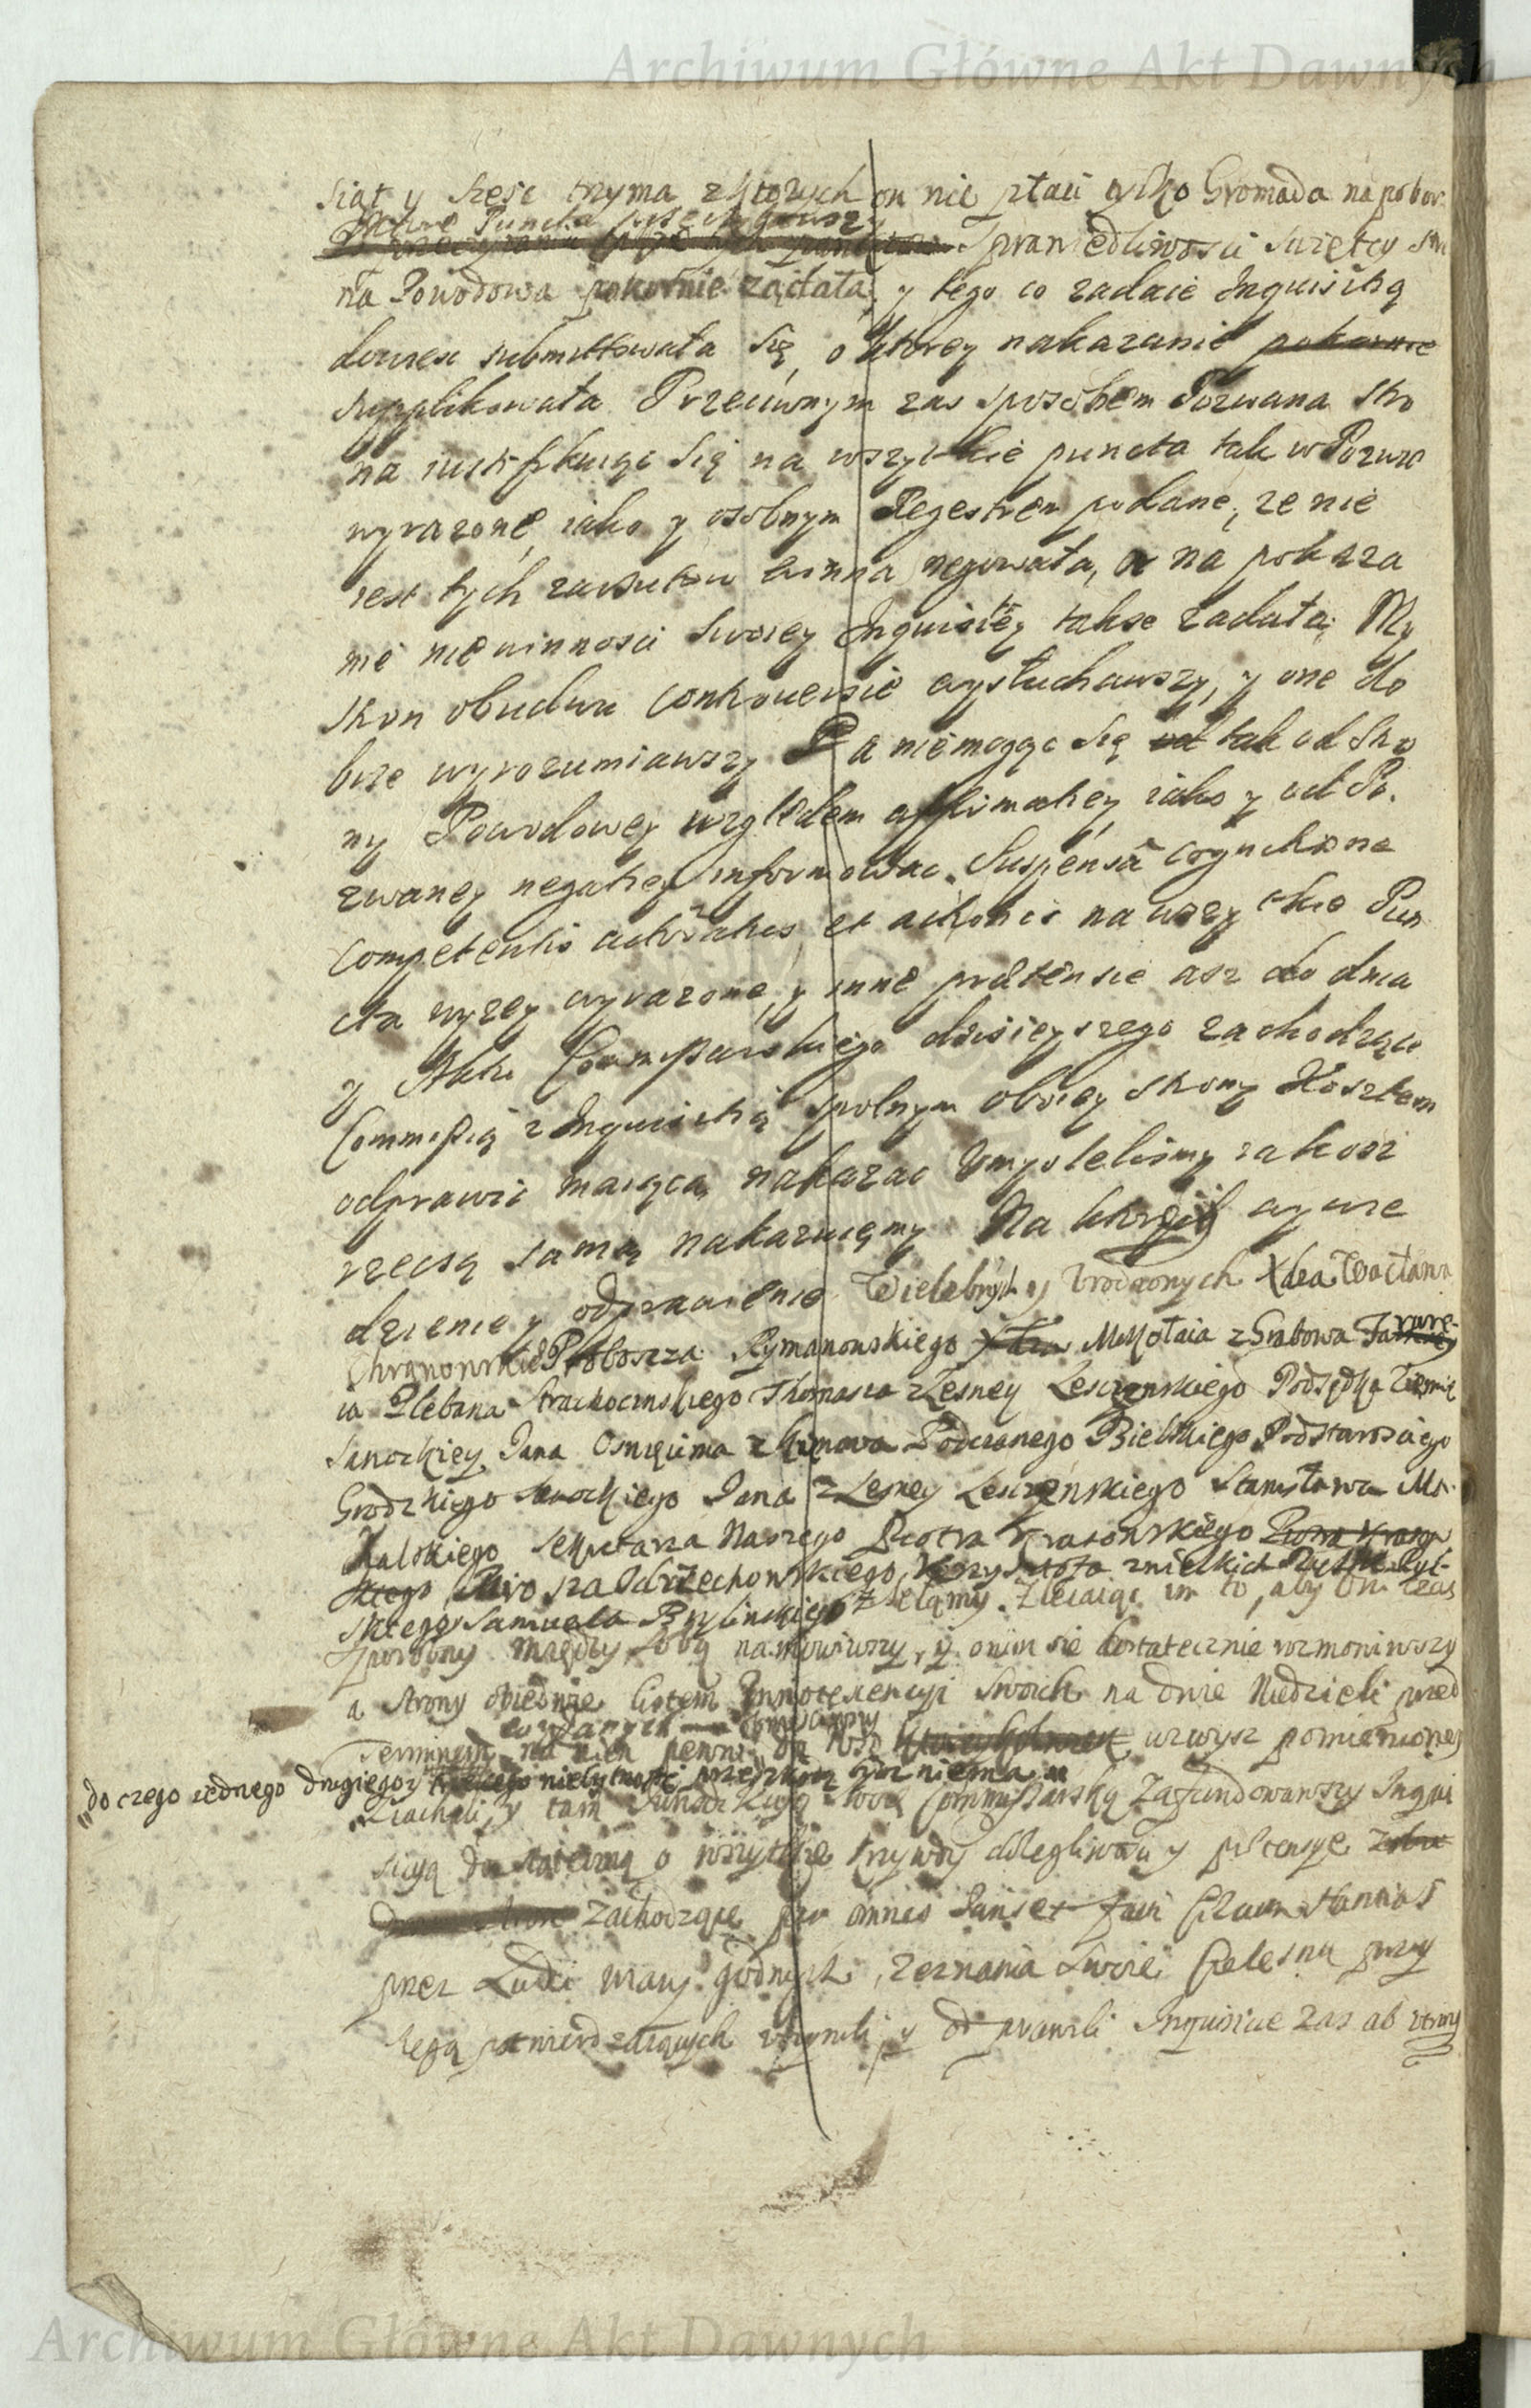 Archiwum Główne Akt Dawnych
siąt y szesc trzyma z ktorych on nie płaci tylko Gromada na pobor
Ktore Puncta
Sprawiedliwosci Swiętey Stro
na Powodowa pokornie żądała, y tego co zadaie Inquisitią
dowiesc submittowała się, o ktorey nakazanie pokornie
supplikowała Przeciwnym zas sposobem Pozwana Stro
na iustifikuiąc się na wszytkie puncta tak w Pozwie
wyrazone, iako y osobnym Regestrem podane, ze nie
iest tych zarzutow winna negowała, a na pokaza
nie niewinnosci swoiey Inquisitiey takze żądała. My
stron obudwu controuersie wysłuchawszy, y one do
brze wyrozumiawszy a niemogąc się od tak od Stro
ny Powodowey względem affirmatiey iako y od Po
zwaney negatiey informowac. Suspensa cognitione
competentis actoratus, et actionis na wszytkie Pun
cta wyzey wyrazone, y inne praetensie asz do dnia
y Aktu Commissarskiego dzisieyszego zachodzące
Commissią z Inquisitią spolnym oboiey strony Kosztem
odprawic maiącą, nakazac Umyslelismy iakosz
rzeczą samą nakazuięmy. Na ktorych zwie
dzenie y odprawienie Wielebnych y Urodzonych Xdza Wacława
Chranowskie Proboszcza Rymanowskiego Mikołaia z Grabowa
ia Plebana Strachocinskiego Thomasza z Lesney Lesczynskiego Podsędka Ziemie
Sanockiey, Jana Osnięcima z Podczaszego Bielskiego, Podstarosciego
Grodzkiego Sanockiego Jana z Lesney Lesczynskiego Stanisława Mi
chalskiego Sekretarza Naszego Piotra
kiego Orzechowskiego, Krzysztofa z wielkich
skiego Samuela Brylinskiego Zsełamy. Zlecaiąc im to, aby Oni Czas
sposobny między sobą namowiwszy, y onim sie dostatecznie rozmowiwszy
a strony obiedwie listem Innotescencyi swoich na dwie Niedzieli przed
Terminem na dzien pewny do Wsi wzwysz pomienioney
do czego iednego drugiego y trzeciego niebytnosc przeszkadzac niema
ziachali, y tam Jurisdikcyą swoię Commissarską Zafundowawszy Inqui
sicyą dostateczną o wszytkie krzywdy dolegliwosci y praetensye
zachodzące per omnes Juris et facti Circumstantias
przez Ludzi wiary godnych, zeznania swoie Cielesną przy
sięgą potwierdzaiących uczynili y odprawili Inquisicie zas ab utring
Archiwum Główne Akt Dawnych